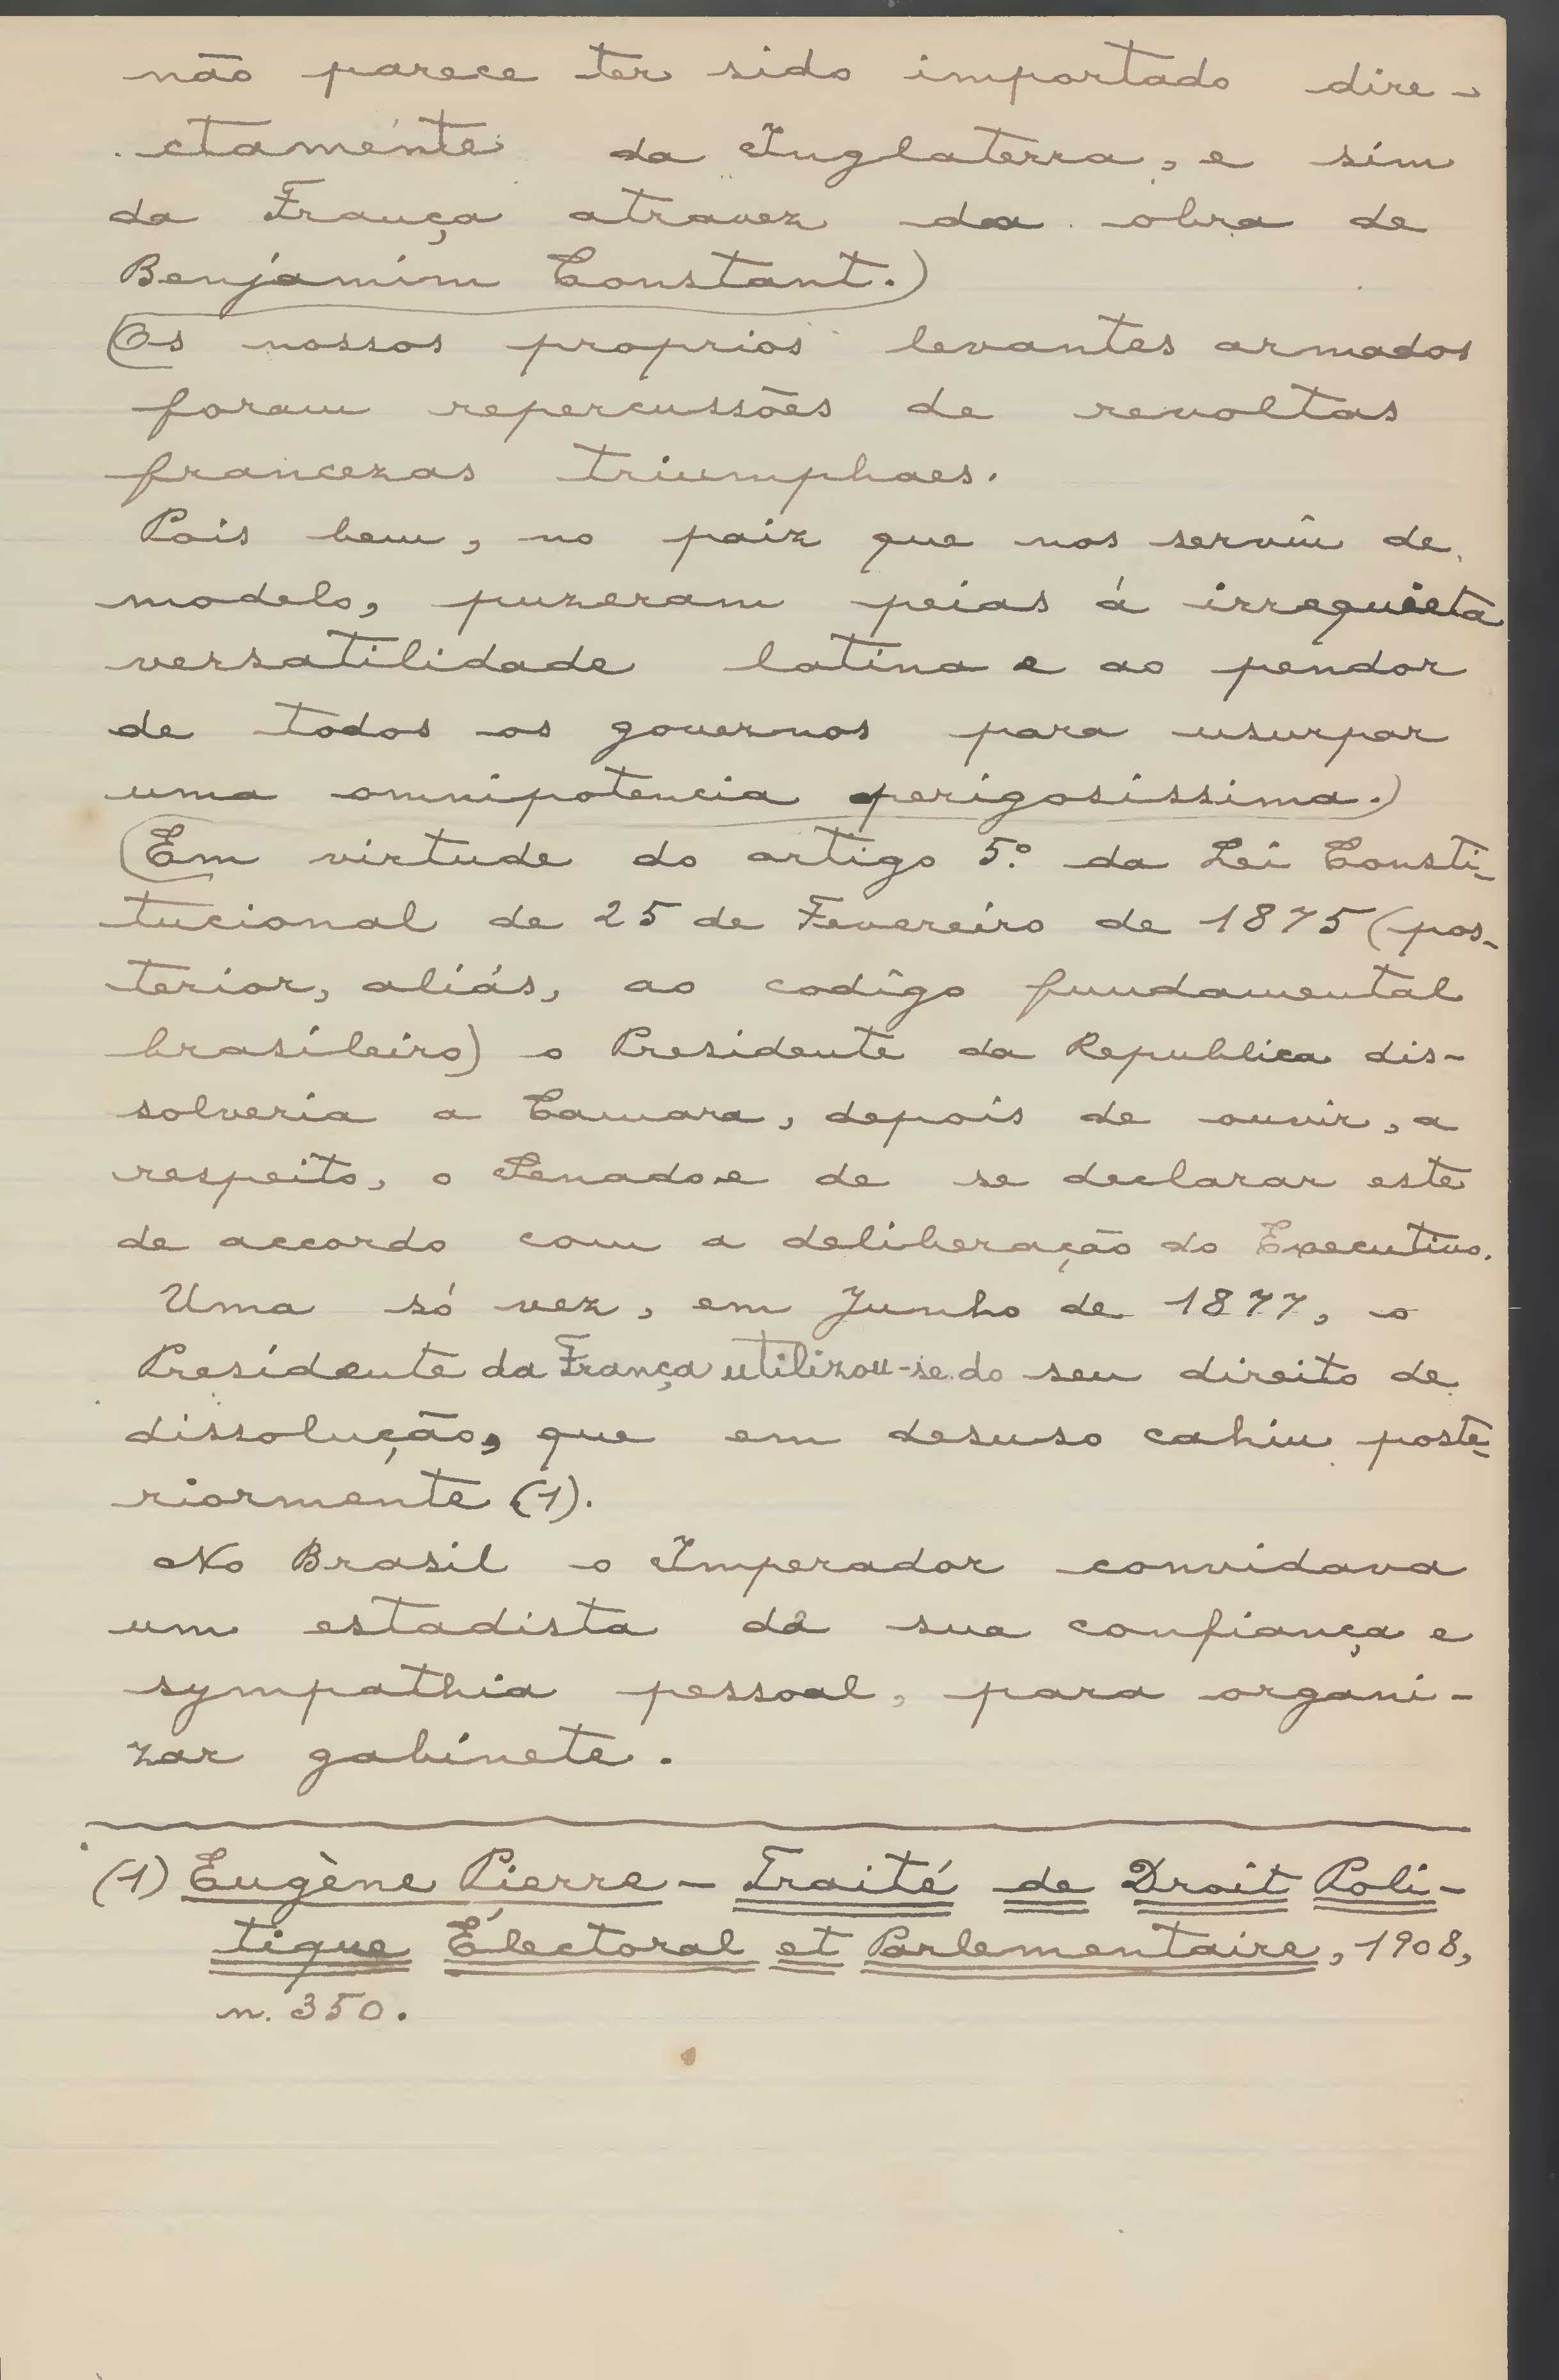 não parece ter sido importado dire-
ctamente da Inglaterra, e sim
da França atravez da obra de
Benjamim Constant.)
(Os nossos proprios levantes armados
foram repercussões de revoltas
francezas triumphaes.
Pois bem, no paiz que nos serviu de
modelo, puzeram peias á irrequieta
versatilidade latina e ao pendor
de todos os governos para usurpar
uma omnipotencia perigosissima.)
(Em virtude do artigo 5.º da Lei Consti-
tucional de 25 de Fevereiro de 1875 (pos-
terior, aliás, ao codigo fundamental
brasileiro) o Presidente da Republica dis-
solveria a Camara, depois de ouvir, a
respeito, o Senado e de se declarar este
de accordo com a deliberação do Executivo.
Uma só vez, em Junho de 1877, o
Presidente da França utilizou-se do seu direito de
dissolução, que em desuso cahiu poste-
riormente (1).
No Brasil o Imperador convidava
um estadista da sua confiança e
sympathia pessoal, para organi-
zar gabinete.
(1) Eugène Pierre - Traité de Droit Poli-
tique Électoral et Parlementaire, 1908,
n. 350.